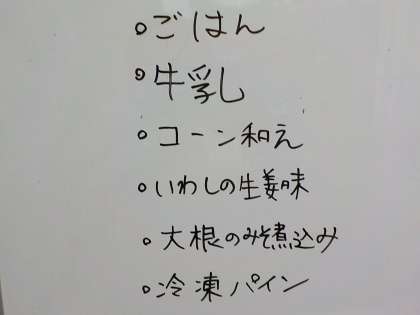 。ごはん
。牛乳
。コーン和え
。いわしの生姜味
。大根のみそ煮込み
。冷凍パイン